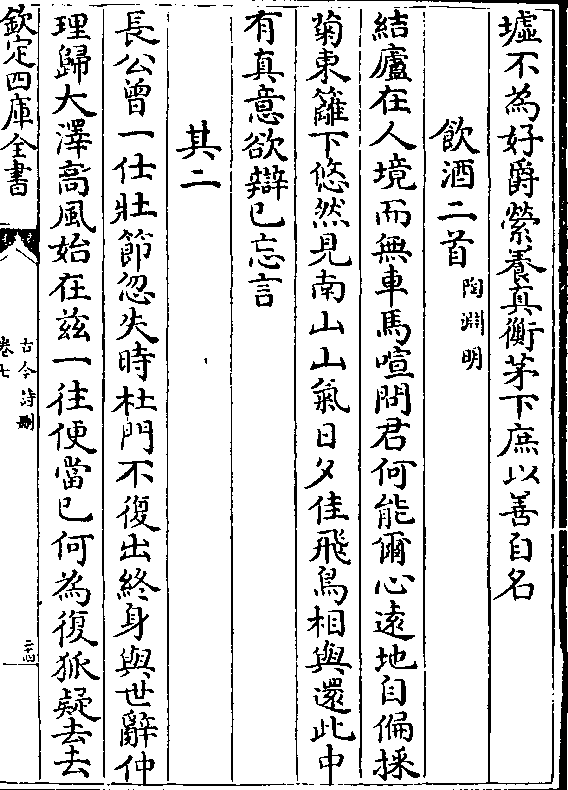 墟不為好爵縈養真衡茅下庶以善自名
飲酒二首
陶淵明
結廬在人境而無車馬喧問君何能爾心遠地自偏採
菊東籬下悠然見南山山氣日夕佳飛鳥相與還此中
有真意欲辯已忘言
其二
長公曾一仕壯節忽失時杜門不復出終身與世辭仲
理歸大澤高風始在兹一往便當已何為復狐疑去去
欽定四庫全書
古今詩刪
卷七
二十四